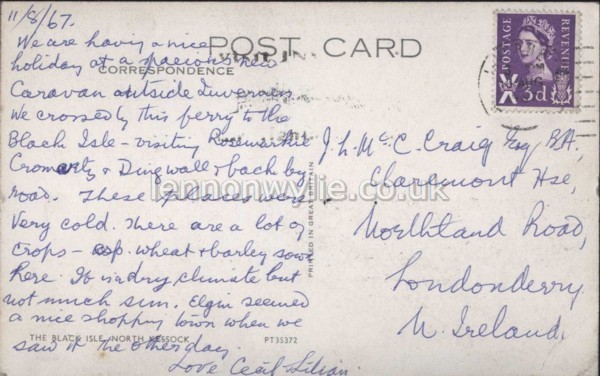 11/8/67.
POST CARD
CORRESPONDENCE
We are having a nice
holiday at a spacious new
Caravan outside Inverness
We crossed by this ferry to the
Black Isle - visiting Rosemarkie
Cromarty & Dingwall & back by
road. These places were
very cold. There are a lot of
crops - wheat & barley sown
here. It is a dry climate but
not much sun. Elgin seemed
a nice shopping town when we
saw it the other day.
Love Cecil & Lilian.
THE BLACK ISLE, NORTH KESSOCK
PT35372
PRINTED IN GREAT BRITAIN
POSTAGE
REVENUE
3d
J. L. McC. Craig Esq BA,
Claremont Hse,
Northland Road,
Londonderry
N. Ireland.
lennonwylie.co.uk